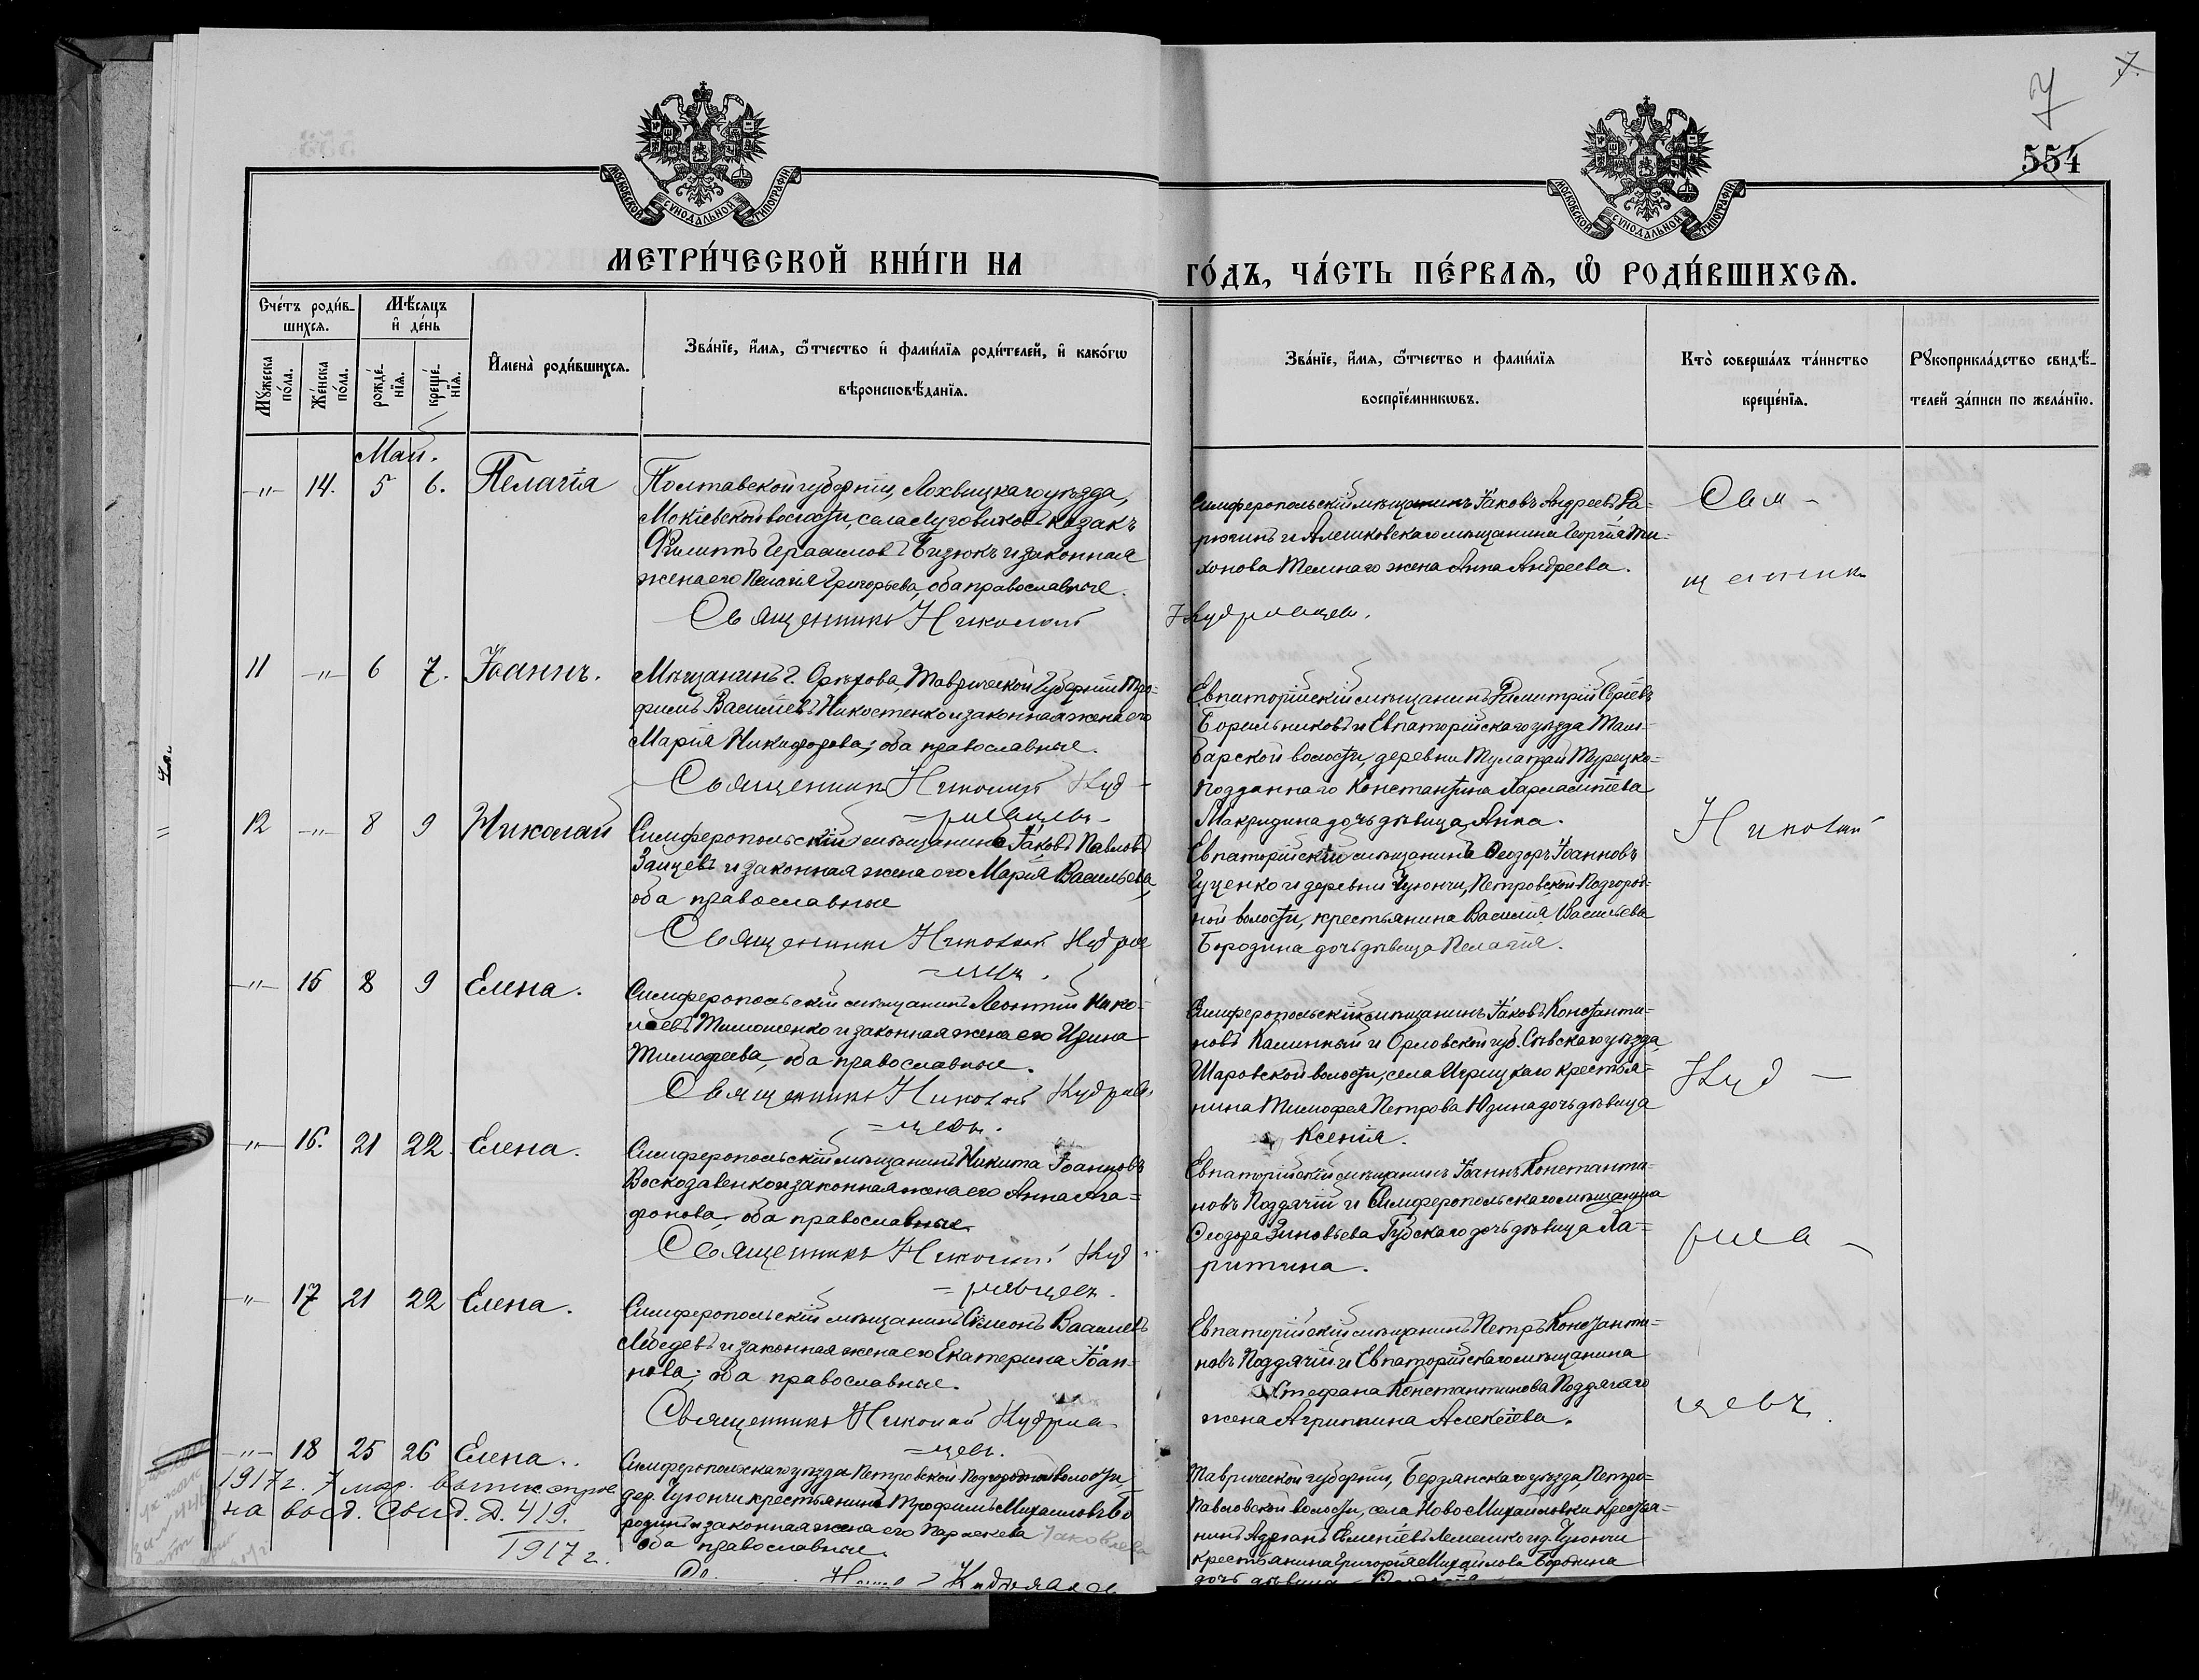 7.
7
554
МОСКОВСКОЙ СѴНОДАЛЬНОЙ ТИПОГРАФІИ
МОСКОВСКОЙ СѴНОДАЛЬНОЙ ТИПОГРАФІИ
МЕТРИ́ЧЕСКОЙ КНИ́ГИ НА
ГО́ДЪ, ЧА́СТЬ ПЕ́РВАѦ, Ѡ РОДИ́ВШИХСѦ.
Сче́тъ роди́в-
шихсѧ.
Мѣ́сѧцъ
и҆ де́нь
Мꙋжеска
по́ла.
Же́нска
по́ла.
рожде́-
нїѧ.
креще́-
нїѧ.
И҆мена̀ роди́вшихсѧ.
Зва́нїе, и҆́мѧ, ѻ҆́тчество и҆ фами́лїѧ роди́телей, и҆ како́гѡ
вѣроисповѣ́данїѧ.
Зва́нїе, и҆́мѧ, ѻ҆́тчество и фами́лїѧ
воспрїе́мникѡвъ.
Кто̀ соверша́лъ та́инство
креще́нїѧ.
Рꙋкоприкла́дство свидѣ́-
телей за́писи по жела́нїю.
Май.
-"- 14. 5 6. Пелагія
Полтавской губерніи, Лохвицкаго уѣзда,
Мокіевской волости, села Луговиковъ казакъ
Филиппъ Герасимовъ Бизюкъ и законная
жена его Пелагія Григорьева, оба православные.
Священникъ Николай Кудрявцевъ.
Симферопольскій мѣщанинъ Іаковъ Андреевъ Ра-
рюгинъ и Алешковскаго мѣщанина Георгія Ти-
хонова Темнаго жена Анна Андреева.
Свя-
щенникъ
11 -"- 6 7. Іоаннъ.
Мѣщанинъ г. Орѣхова, Таврической Губерніи Тро-
фимъ Васильевъ Никостенко и законная жена его
Марія Никифорова; оба православные.
Священникъ Николай Куд-
=рявцевъ-
Евпаторійскій мѣщанинъ Димитрій Сергѣевъ
Борильниковъ и Евпаторійскаго уѣзда
барской волости, деревни Тулатай Турецко-
подданнаго Константина
Макридина дочь дѣвица Анна.
12 -"- 8 9 Николай
Симферопольскій мѣщанинъ Іаковъ Павловъ
Заицевъ и законная жена его Марія Васильева,
оба православные
Священникъ Николай Кудряв
=цевъ.
Евпаторійскій мѣщанинъ Ѳеодоръ Іоанновъ
Гуценко и деревни Чуюнчи, Петровской-Подгород-
ной волости, крестьянина Василія Васильева
Бородина дочь дѣвица Пелагія.
Николай
-"- 15 8 9 Елена.
Симферопольскій мѣщанинъ Леонтій Нико-
лаевъ Тимошенко и законная жена его Ирина
Тимофеева, оба православные.
Священникъ Николай Кудряв-
=цевъ.
Симферопольскій мѣщанинъ Іаковъ Константи-
новъ Калинный и Орловской губ. Сѣвскаго уѣзда,
Шаровской волости, села Игрицкаго крестья-
нина Тимофея Петрова Юдина дочь дѣвица
Ксенія.
Куд-
-"- 16. 21 22. Елена.
Симферопольскій мѣщанинъ Никита Іоанновъ
Воскозавенко и законная жена его Анна Ага=
фонова, оба православные.
Священникъ Николай Куд-
=рявцевъ.
Евпаторійскій мѣщанинъ Іоаннъ Константи-
новъ Поддячій и Симферопольскаго мѣщанина
Ѳеодора Зиновьева Губскаго дочь дѣвица Ха=
ритина.
рява-
-"- 17 21 22 Елена.
Симферопольскій мѣщанинъ Симеонъ Васильевъ
Лебедевъ и законная жена его Екатерина Іоан-
нова; оба православные.
Священникъ Николай Кудряв-
=цевъ.
Евпаторійскій мѣщанинъ Петръ Константи-
новъ Поддячій и Евпаторійскаго мѣщанина
Стефана Константинова Поддячаго
жена Агриппина Алексѣева.
цевъ.
-"- 18 25 26 Елена.
Симферопольскаго уѣзда Петровской-Подгородной волости,
дер. Чуюнчи крестьянинъ Трофимъ Михаиловъ Бо
родинъ и законная жена его Параскева Іаковлева
оба православные.
Таврической губерніи, Бердянскаго уѣзда, Петро-
павловской волости, села Ново-Михайловки крестья-
нинъ Адріанъ Климентіевъ Лемешко и д. Чуюнчи
крестьянина Григорія Михайлова Бородина
дочь дѣвица
1917 г. 7 мар.
на выд. Свид. Д. 419.
1917 г.